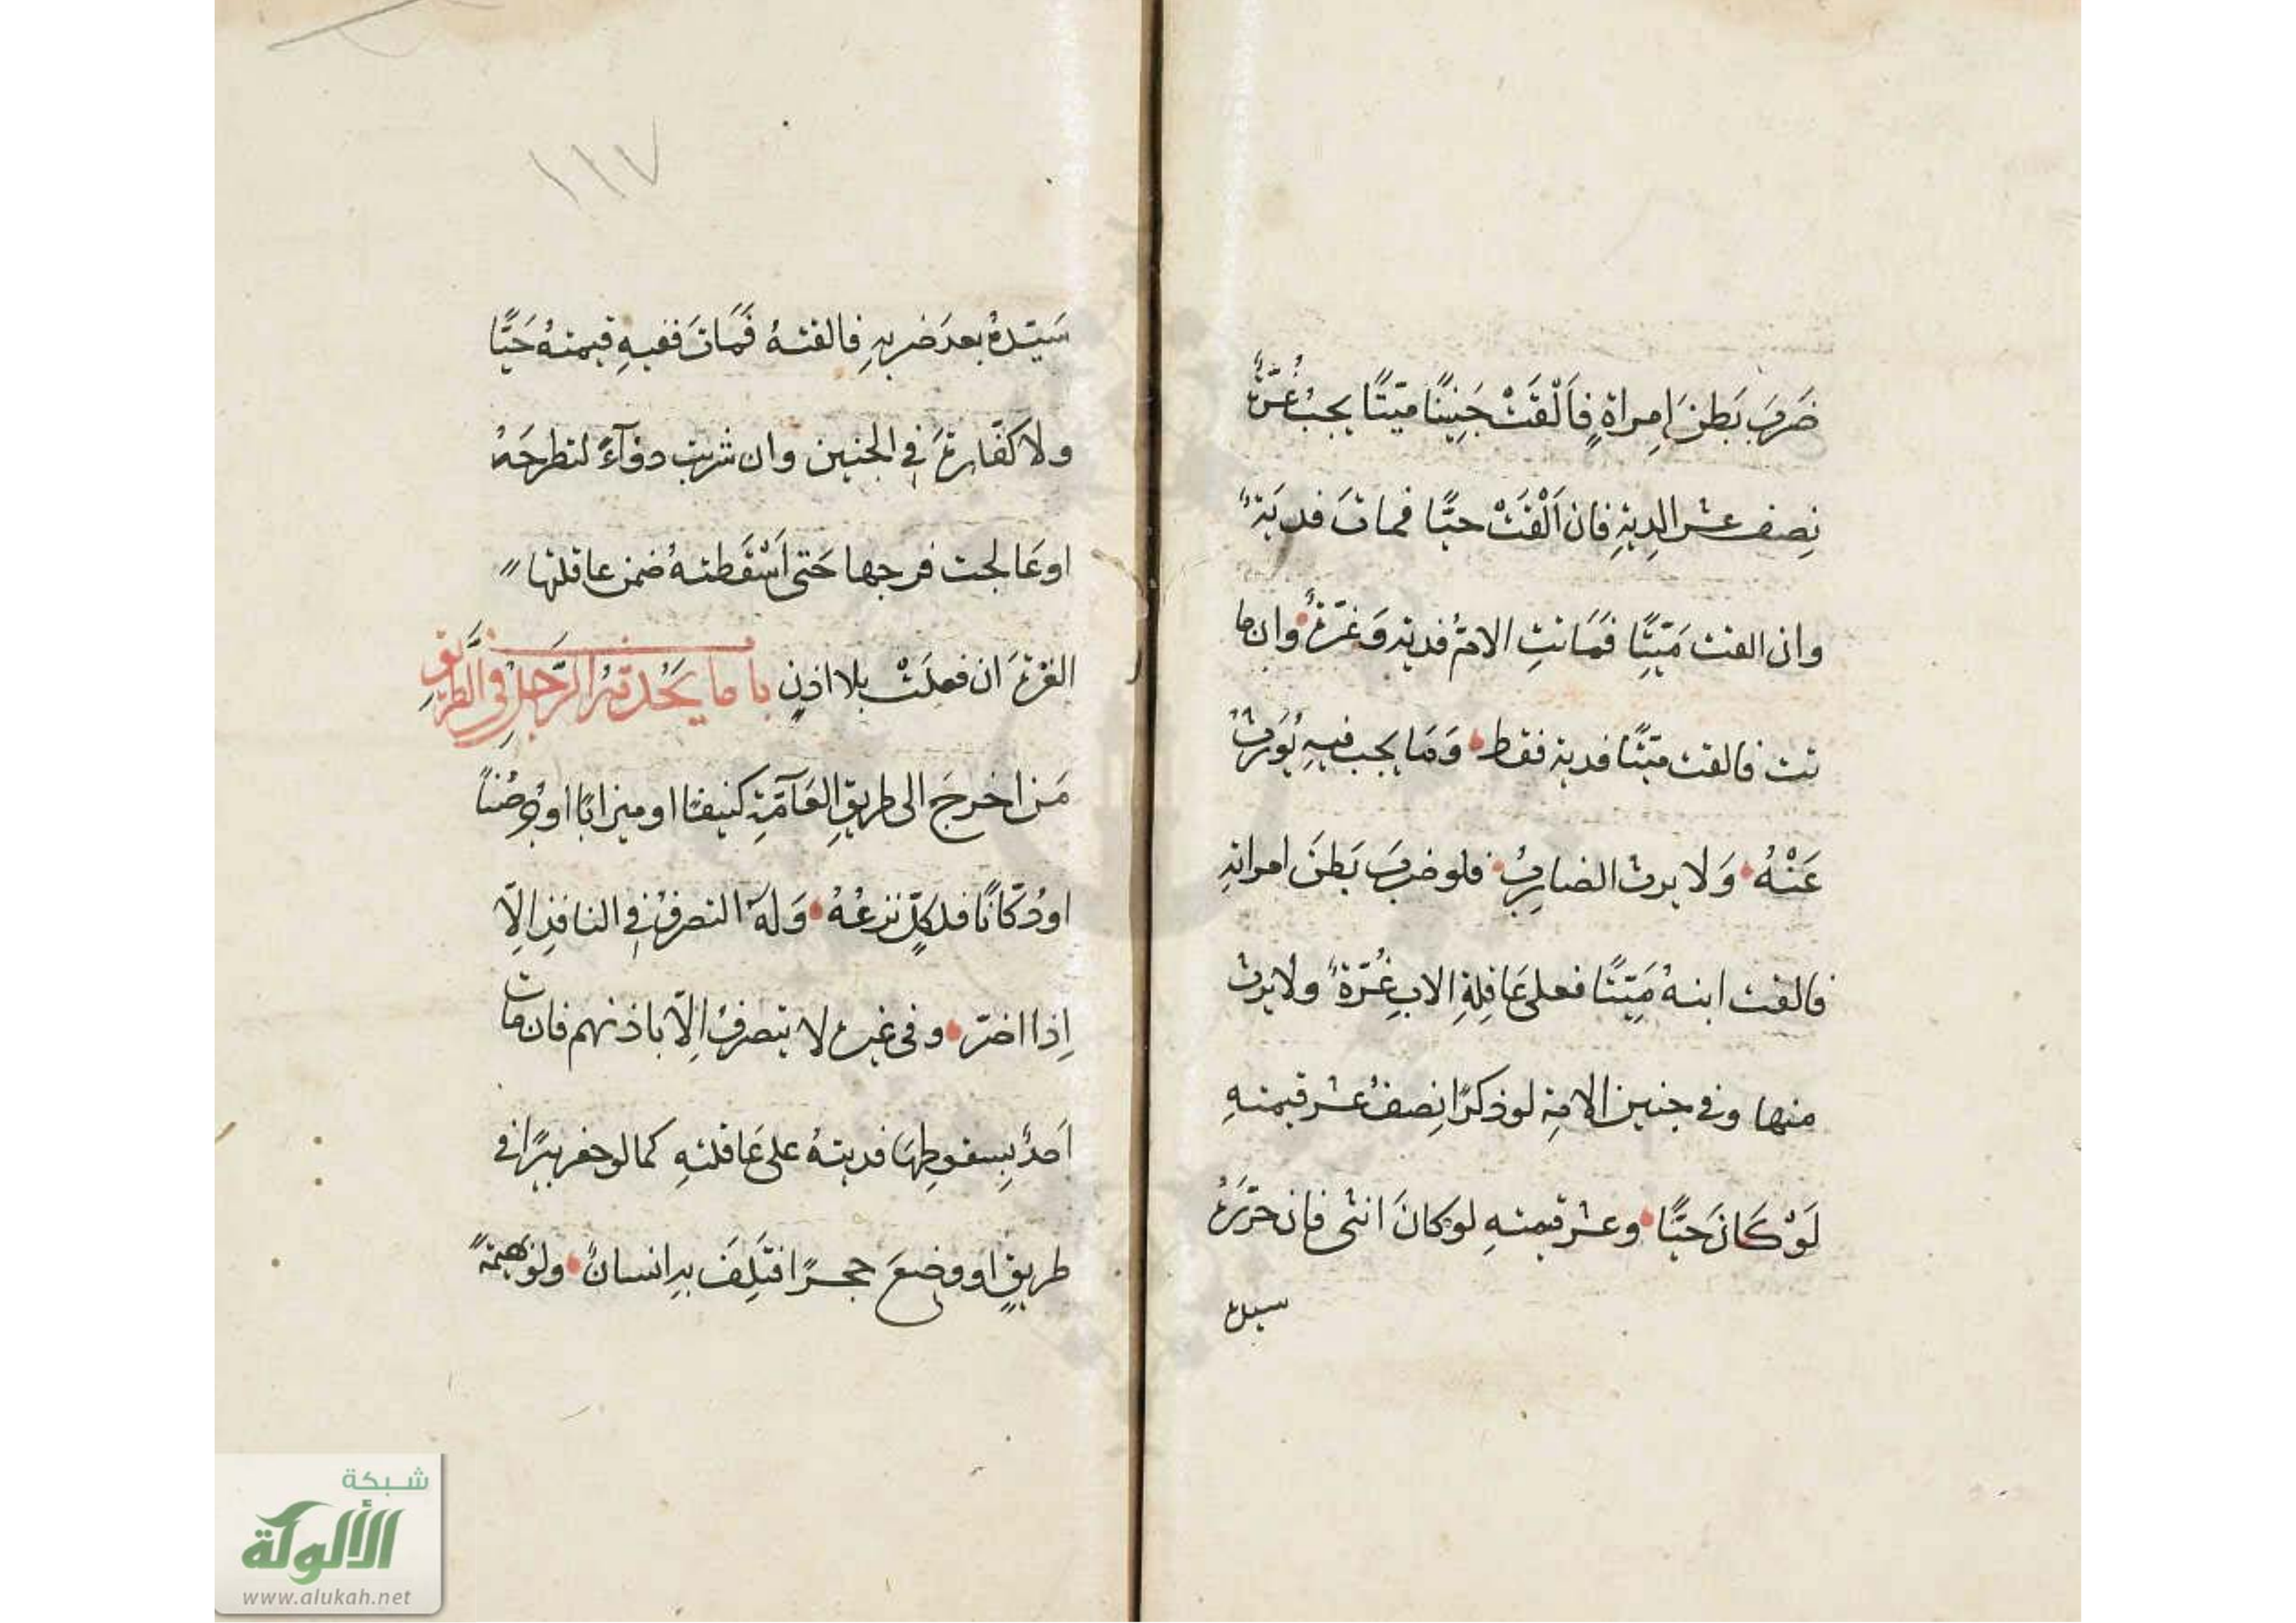 ضَرَبَ بَطنَ امِراةٍ فَاَلْقَتْ جَنِينًا ميّتًا يجبُ غُرّةٌ
نِصف عشر الدِيةِ فان اَلْقَتْ حيًّا فماتَ فديَةٌ
وان القت مَيّتًا فَمَاتتِ الامُّ فديةٌ وَغرّةٌ وان ما
تت فالقت ميّتًا فدية فقط وَمَا يجب فيهِ يُورثُ
عَنْهُ وَلا يرث الضارِبُ فلو ضربَ بَطنَ امراتهِ
فالقت ابنهُ مَيّتًا فعلى عَاقِلةِ الابِ غُرّةٌ ولا يرث
منها وفى جنين الامةِ لو ذكرًا نِصفُ عشر قيمتهِ
لَوْ كَانَ حَيًّا وعشر قيمتهِ لو كانَ انثى فان حَرّرَهُ
سيده
١١٧
سَيّدهُ بعدَ ضربهِ فالقتهُ فَمَاتَ ففيهِ قيمتهُ حَيًّا
ولا كفّارةَ فى الجنين وان شربت دوَآءً لتطرحَهُ
او عَالجت فرجها حَتى اَسْقَطتهُ ضمن عاقلتها
الغرّةَ ان فعلَتْ بلا اذنٍ باب ما يَحُدثهُ الرّجلُ فى الطّريقِ
مَن اخرجَ الى طريقِ العَآمّةِ كنيفًا او ميزابًا او جُرصُنًا
او دُكّانًا فلكلٍّ نزعُهُ وَلهُ التصرفُ فى النافذِ الِاّ
اِذا اضرّ وفى غيره لا يتصرفُ اِلاّ باذنهم فان مات
احدٌ بِسقوطِهَا فديتهُ على عَاقلتهِ كما لو حفر بيرًا فى
طريقٍ او وضعَ حجرًا فتَلِفَ بهِ انسانٌ ولو بهيمةً
شبكة
الألوكة
www.alukah.net